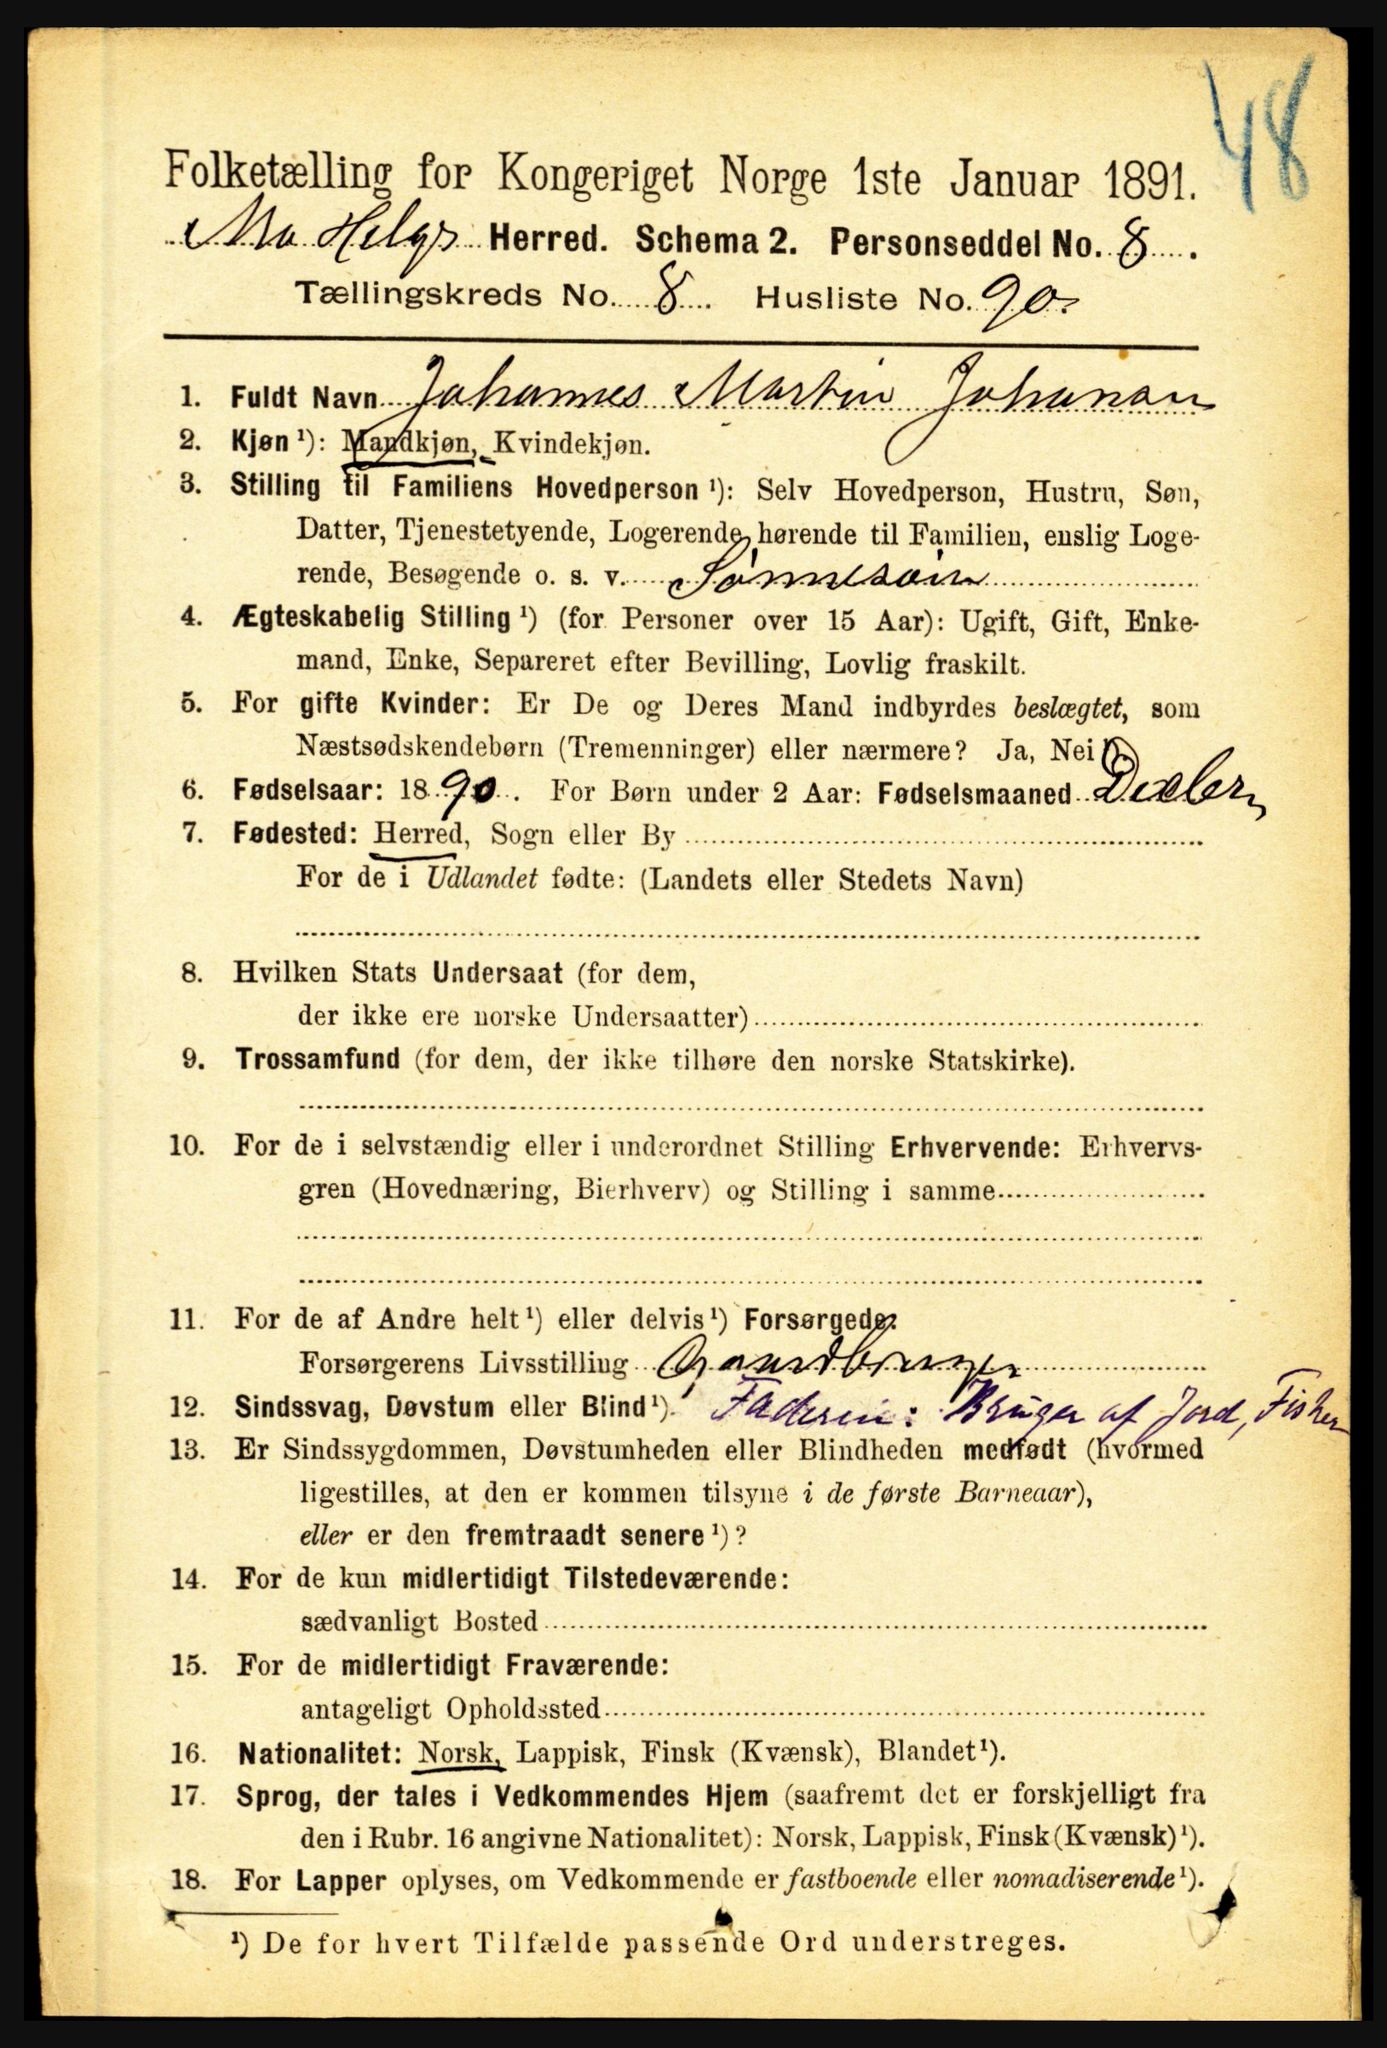 48
Folketælling for Kongeriget Norge 1ste Januar 1891.
Mo Helgs Herred. Schema 2. Personseddel No. 8.
Tællingskreds No. 8. Husliste No. 90.
1. Fuldt Navn Johannes Martin Johansen
2. Kjøn ¹): Mandkjøn, Kvindekjøn.
3. Stilling til Familiens Hovedperson ¹): Selv Hovedperson, Hustru, Søn,
Datter, Tjenestetyende, Logerende hørende til Familien, enslig Loge-
rende, Besøgende o. s. v. Sønnesøn
4. Ægteskabelig Stilling ¹) (for Personer over 15 Aar): Ugift, Gift, Enke-
mand, Enke, Separeret efter Bevilling, Lovlig fraskilt.
5. For gifte Kvinder: Er De og Deres Mand indbyrdes beslægtet, som
Næstsødskendebørn (Tremenninger) eller nærmere? Ja, Nei ¹).
6. Fødselsaar: 1890. For Børn under 2 Aar: Fødselsmaaned Decbr.
7. Fødested: Herred, Sogn eller By
For de i Udlandet fødte: (Landets eller Stedets Navn)
8. Hvilken Stats Undersaat (for dem,
der ikke ere norske Undersaatter)
9. Trossamfund (for dem, der ikke tilhøre den norske Statskirke).
10. For de i selvstændig eller i underordnet Stilling Erhvervende: Erhvervs-
gren (Hovednæring, Bierhverv) og Stilling i samme
11. For de af Andre helt ¹) eller delvis ¹) Forsørgede:
Forsørgerens Livsstilling Gaardbruger
12. Sindssvag, Døvstum eller Blind ¹). Faderen: Bruger af Jord, Fisker
13. Er Sindssygdommen, Døvstumheden eller Blindheden medfødt (hvormed
ligestilles, at den er kommen tilsyne i de første Barneaar),
eller er den fremtraadt senere ¹)?
14. For de kun midlertidigt Tilstedeværende:
sædvanligt Bosted
15. For de midlertidigt Fraværende:
antageligt Opholdssted
16. Nationalitet: Norsk, Lappisk, Finsk (Kvænsk), Blandet ¹).
17. Sprog, der tales i Vedkommendes Hjem (saafremt det er forskjelligt fra
den i Rubr. 16 angivne Nationalitet): Norsk, Lappisk, Finsk (Kvænsk) ¹).
18. For Lapper oplyses, om Vedkommende er fastboende eller nomadiserende ¹).
¹) De for hvert Tilfælde passende Ord understreges.